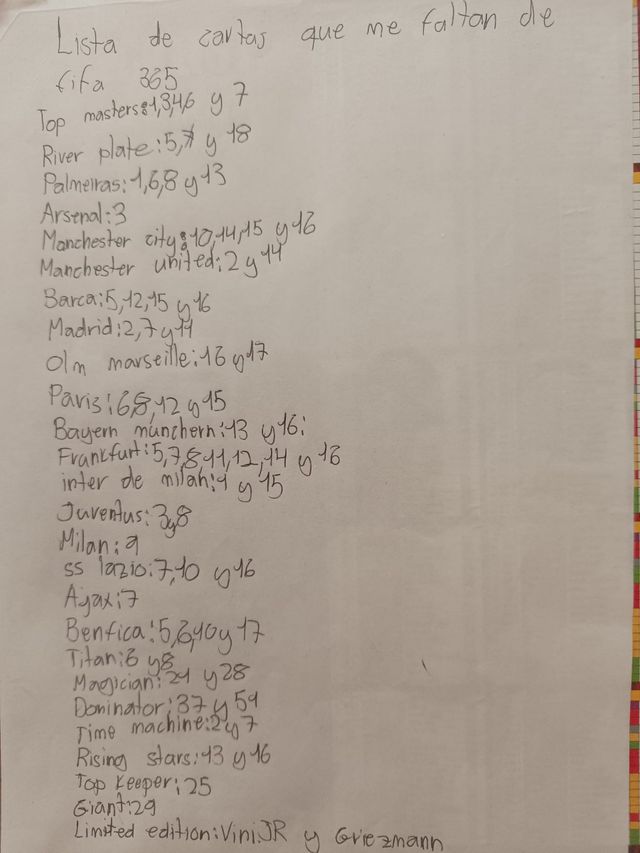 Lista de cartas que me faltan de
fifa 365
Top masters:1,3,4,6 y 7
River plate:5,7 y 18
Palmeiras:1,6,8 y 13
Arsenal:3
Manchester city:10,14,15 y 16
Manchester united:2 y 14
Barca:5,12,15 y 16
Madrid:2,7 y 11
Olm marseille:16 y 17
Paris:6,8,12 y 15
Bayern munchern:13 y 16:
Frankfurt:5,7,8,11,12,14 y 16
inter de milan:1 y 15
Juventus:3 y 8
Milan:9
ss lazio:7,10 y 16
Ajax:7
Benfica:5,6,10 y 17
Titan:6 y 8
Magician:21 y 28
Dominator:37 y 54
Time machine:2 y 7
Rising stars:13 y 16
Top Keeper:25
Giant:29
Limited edition:Vini.JR y Griezmann